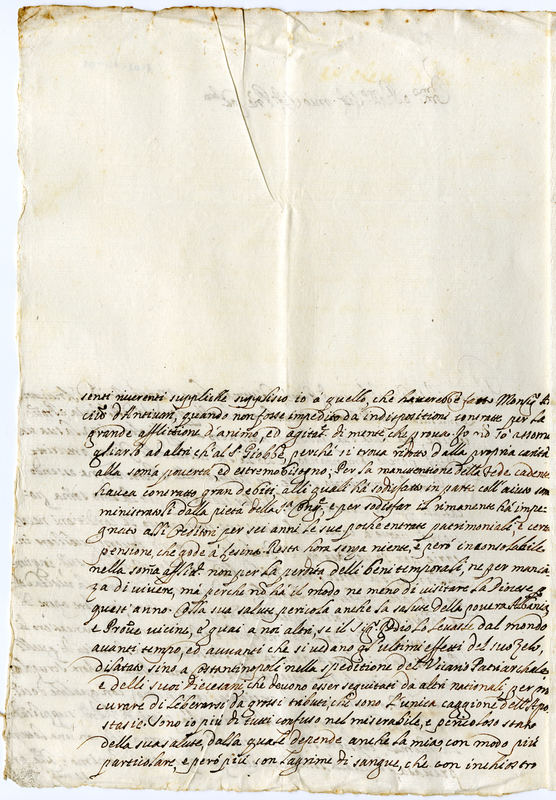 senti riverenti suppliche supplisco io a quello, che haverebbe fatto Monsigr Ar
civo d'Antivari, quando non fosse impedito da indispositioni contratte per la
grande afflittione d'animo, ed agitat.e di mente, che prova. Io no lo assomi
gliarò ad altri ch'al Sto Giobbe, perche si trova ridotto dalla propria carità
alla soma povertà, ed estremo bisogno; Per la manutentione della Fede cadente
haveva contratto gran debiti, alli quali ha sodisfatto in parte coll' aiuto som
ministratoli dalla pietà della Sa Congne, e per sodisfar il rimanente hà impe
gnato alli Creditori per sei anni le sue poche entrate patrimoniali, e certa
pensione, che gode à Lesina. Resta hora senza niente, e però inconsolabile
nella soma afflite. non per la perdita delli beni temporali, ne per mancan
za di vivere, ma perche no hà il modo ne meno di visitare la Diocese
quest' anno. Colla sua salute pericola anche la salute della povera Albania,
e Provce vicine, e guai a noi altri, se il Sigr Iddio lo levasse dal mondo
avanti tempo, ed avvanti che si vedano gl' ultimi effetti del suo zelo,
dilatato sino a Costantinopoli nella speditione del Vicario Patriarchale
e delli suoi Diecesani, che devono esser seguitati da altri nationali, per pro
curare di liberarsi da grossi tributi, che sono l'unica caggione dell' Apo
stasie. Sono io più di tutti confuso nel miserabile, e pericoloso stato
della sua salute, dalla quale depende anche la mia con modo più
particolare, e però più con lagrime di sangue, che con inchiostro